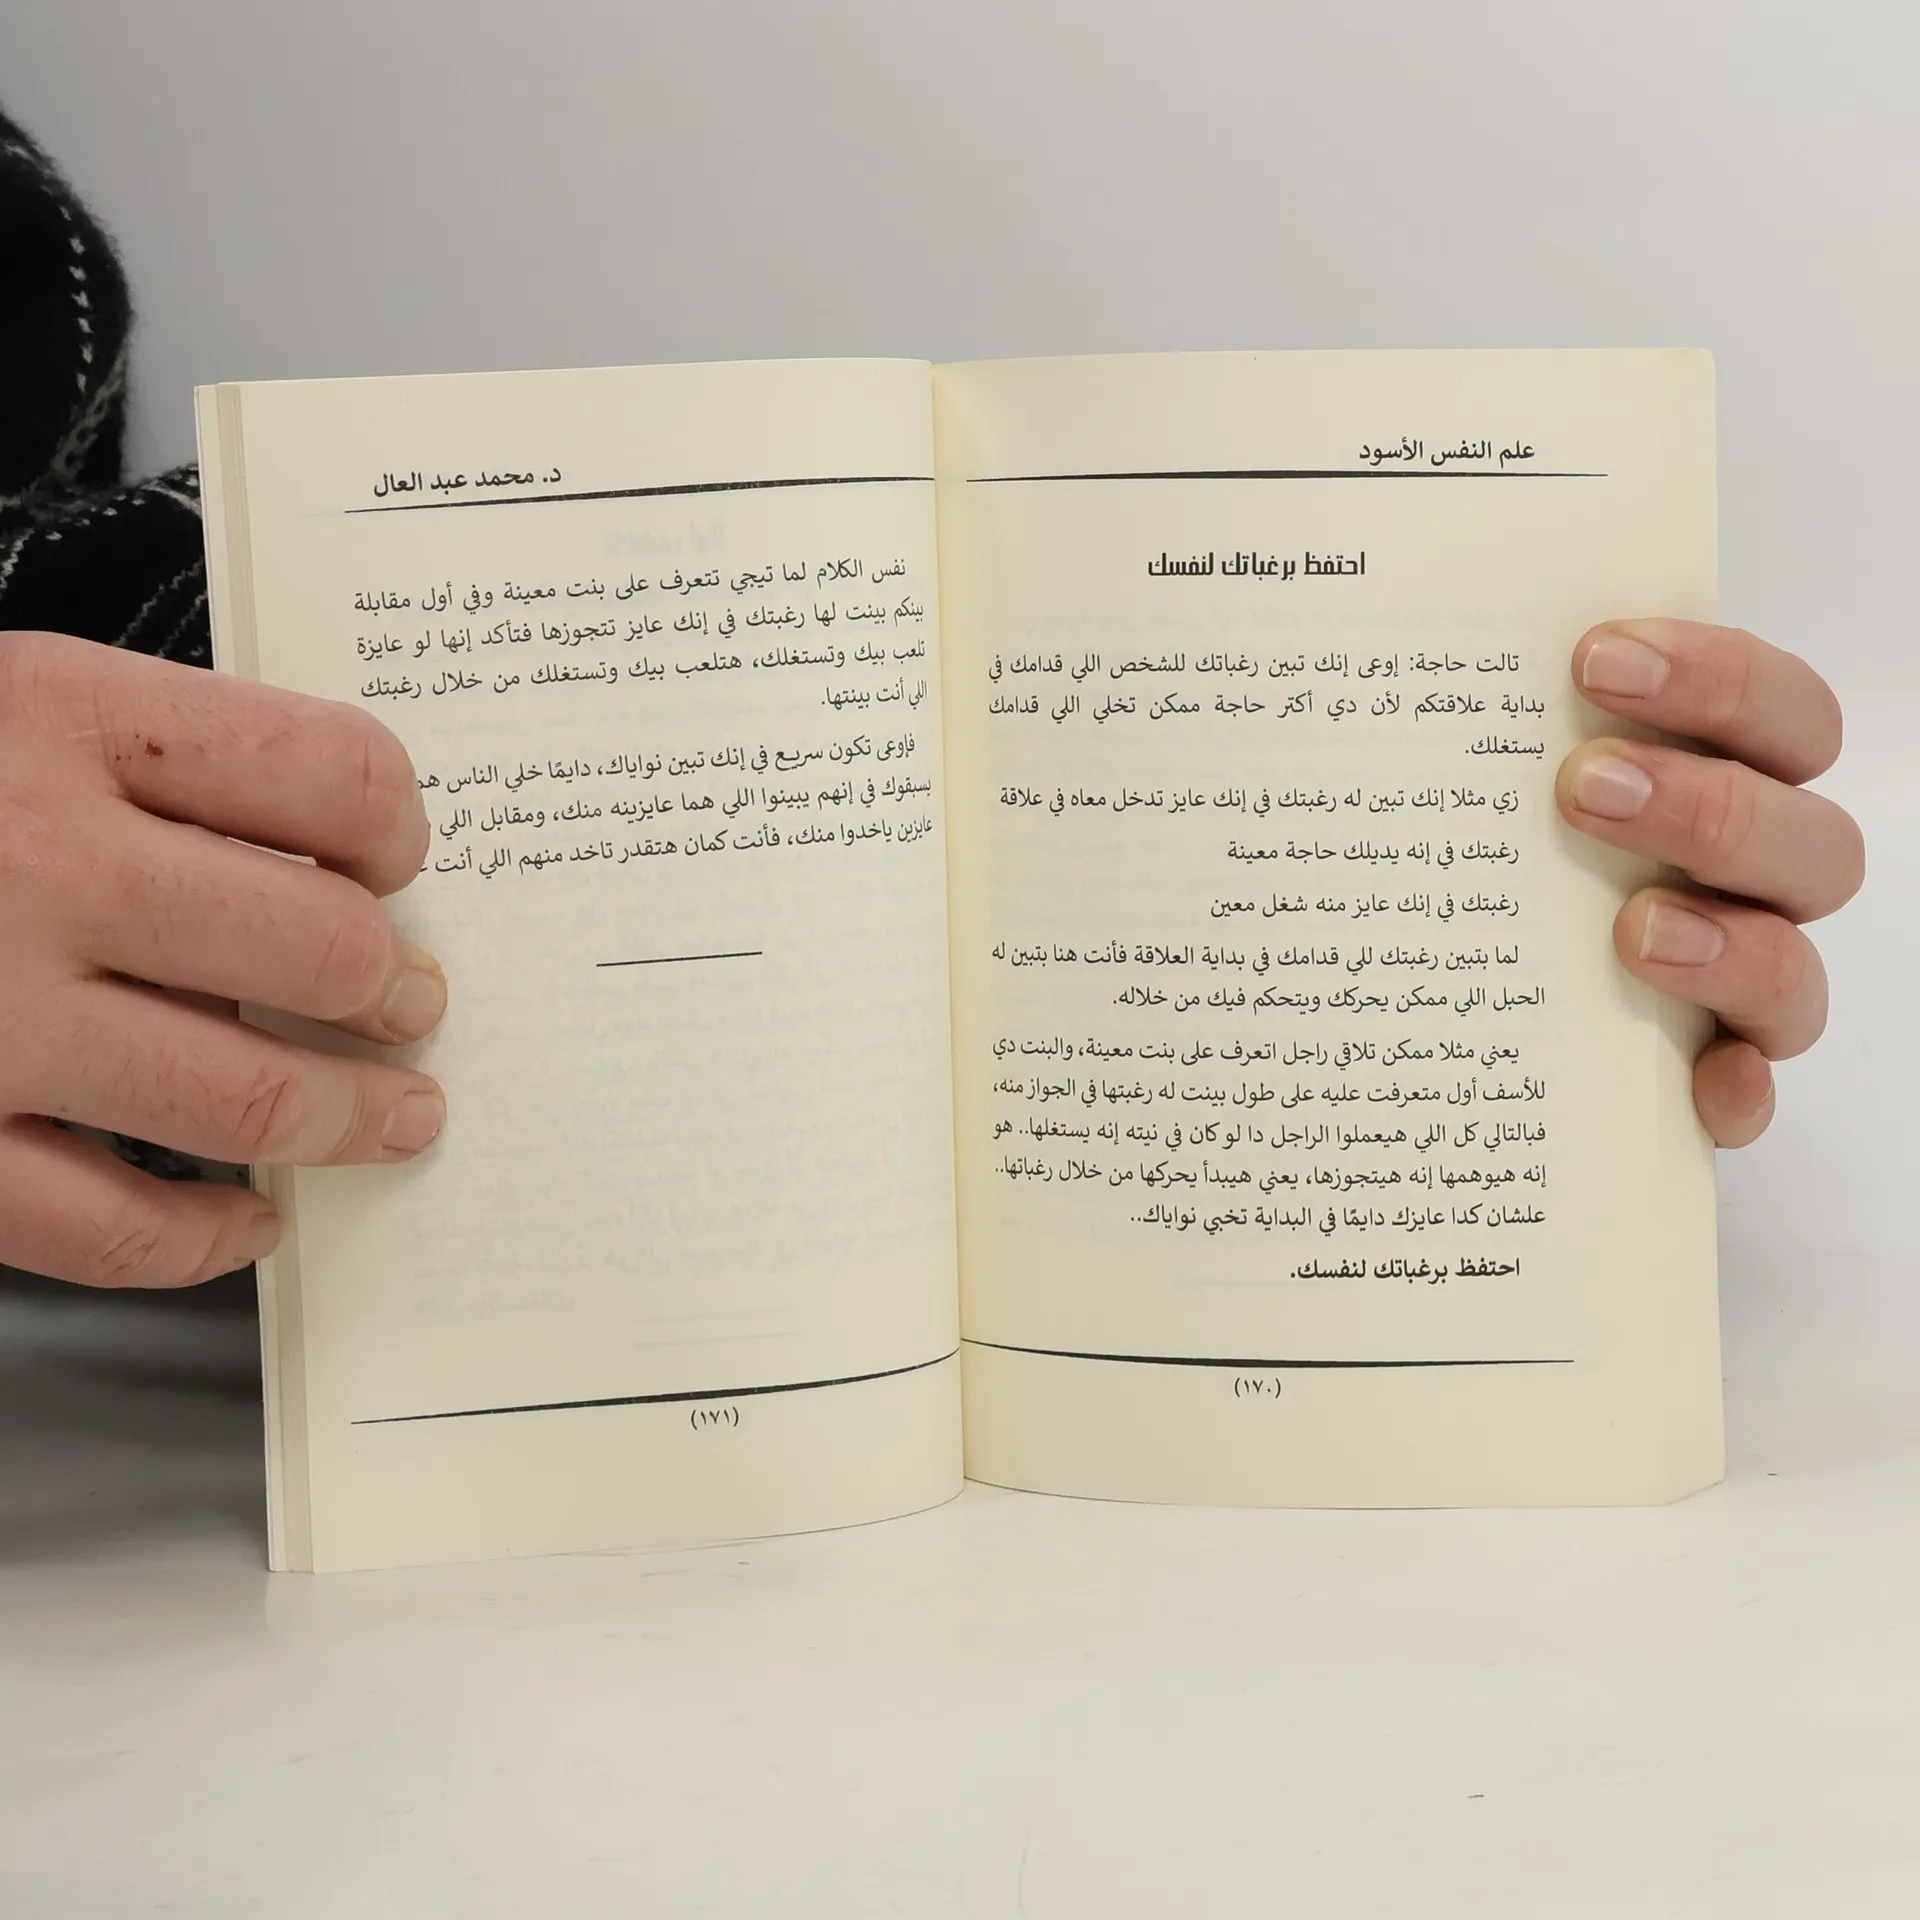 علم النفس الأسود
احتفظ برغباتك لنفسك
تالت حاجة: إوعى إنك تبين رغباتك للشخص اللي قدامك في
بداية علاقتكم لأن دي أكتر حاجة ممكن تخلي اللي قدامك
يستغلك.
زي مثلا إنك تبين له رغبتك في إنك عايز تدخل معاه في علاقة
رغبتك في إنه يديلك حاجة معينة
رغبتك في إنك عايز منه شغل معين
لما بتبين رغبتك للي قدامك في بداية العلاقة فأنت هنا بتبين له
الحبل اللي ممكن يحركك ويتحكم فيك من خلاله.
يعني مثلا ممكن تلاقي راجل اتعرف على بنت معينة، والبنت دي
للأسف أول متعرفت عليه على طول بينت له رغبتها في الجواز منه،
فبالتالي كل اللي هيعملوا الراجل دا لو كان في نيته إنه يستغلها.. هو
إنه هيوهمها إنه هيتجوزها، يعني هيبدأ يحركها من خلال رغباتها..
علشان كدا عايزك دايمًا في البداية تخبي نواياك..
احتفظ برغباتك لنفسك.
(١٧٠)
د. محمد عبد العال
نفس الكلام لما تيجي تتعرف على بنت معينة وفي أول مقابلة
بينكم بينت لها رغبتك في إنك عايز تتجوزها فتأكد إنها لو عايزة
تلعب بيك وتستغلك، هتلعب بيك وتستغلك من خلال رغبتك
اللي أنت بينتها.
فإوعى تكون سريع في إنك تبين نواياك، دايمًا خلي الناس هم
يسبقوك في إنهم يبينوا اللي هما عايزينه منك، ومقابل اللي
عايزين ياخدوا منك، فأنت كمان هتقدر تاخد منهم اللي أنت
(١٧١)